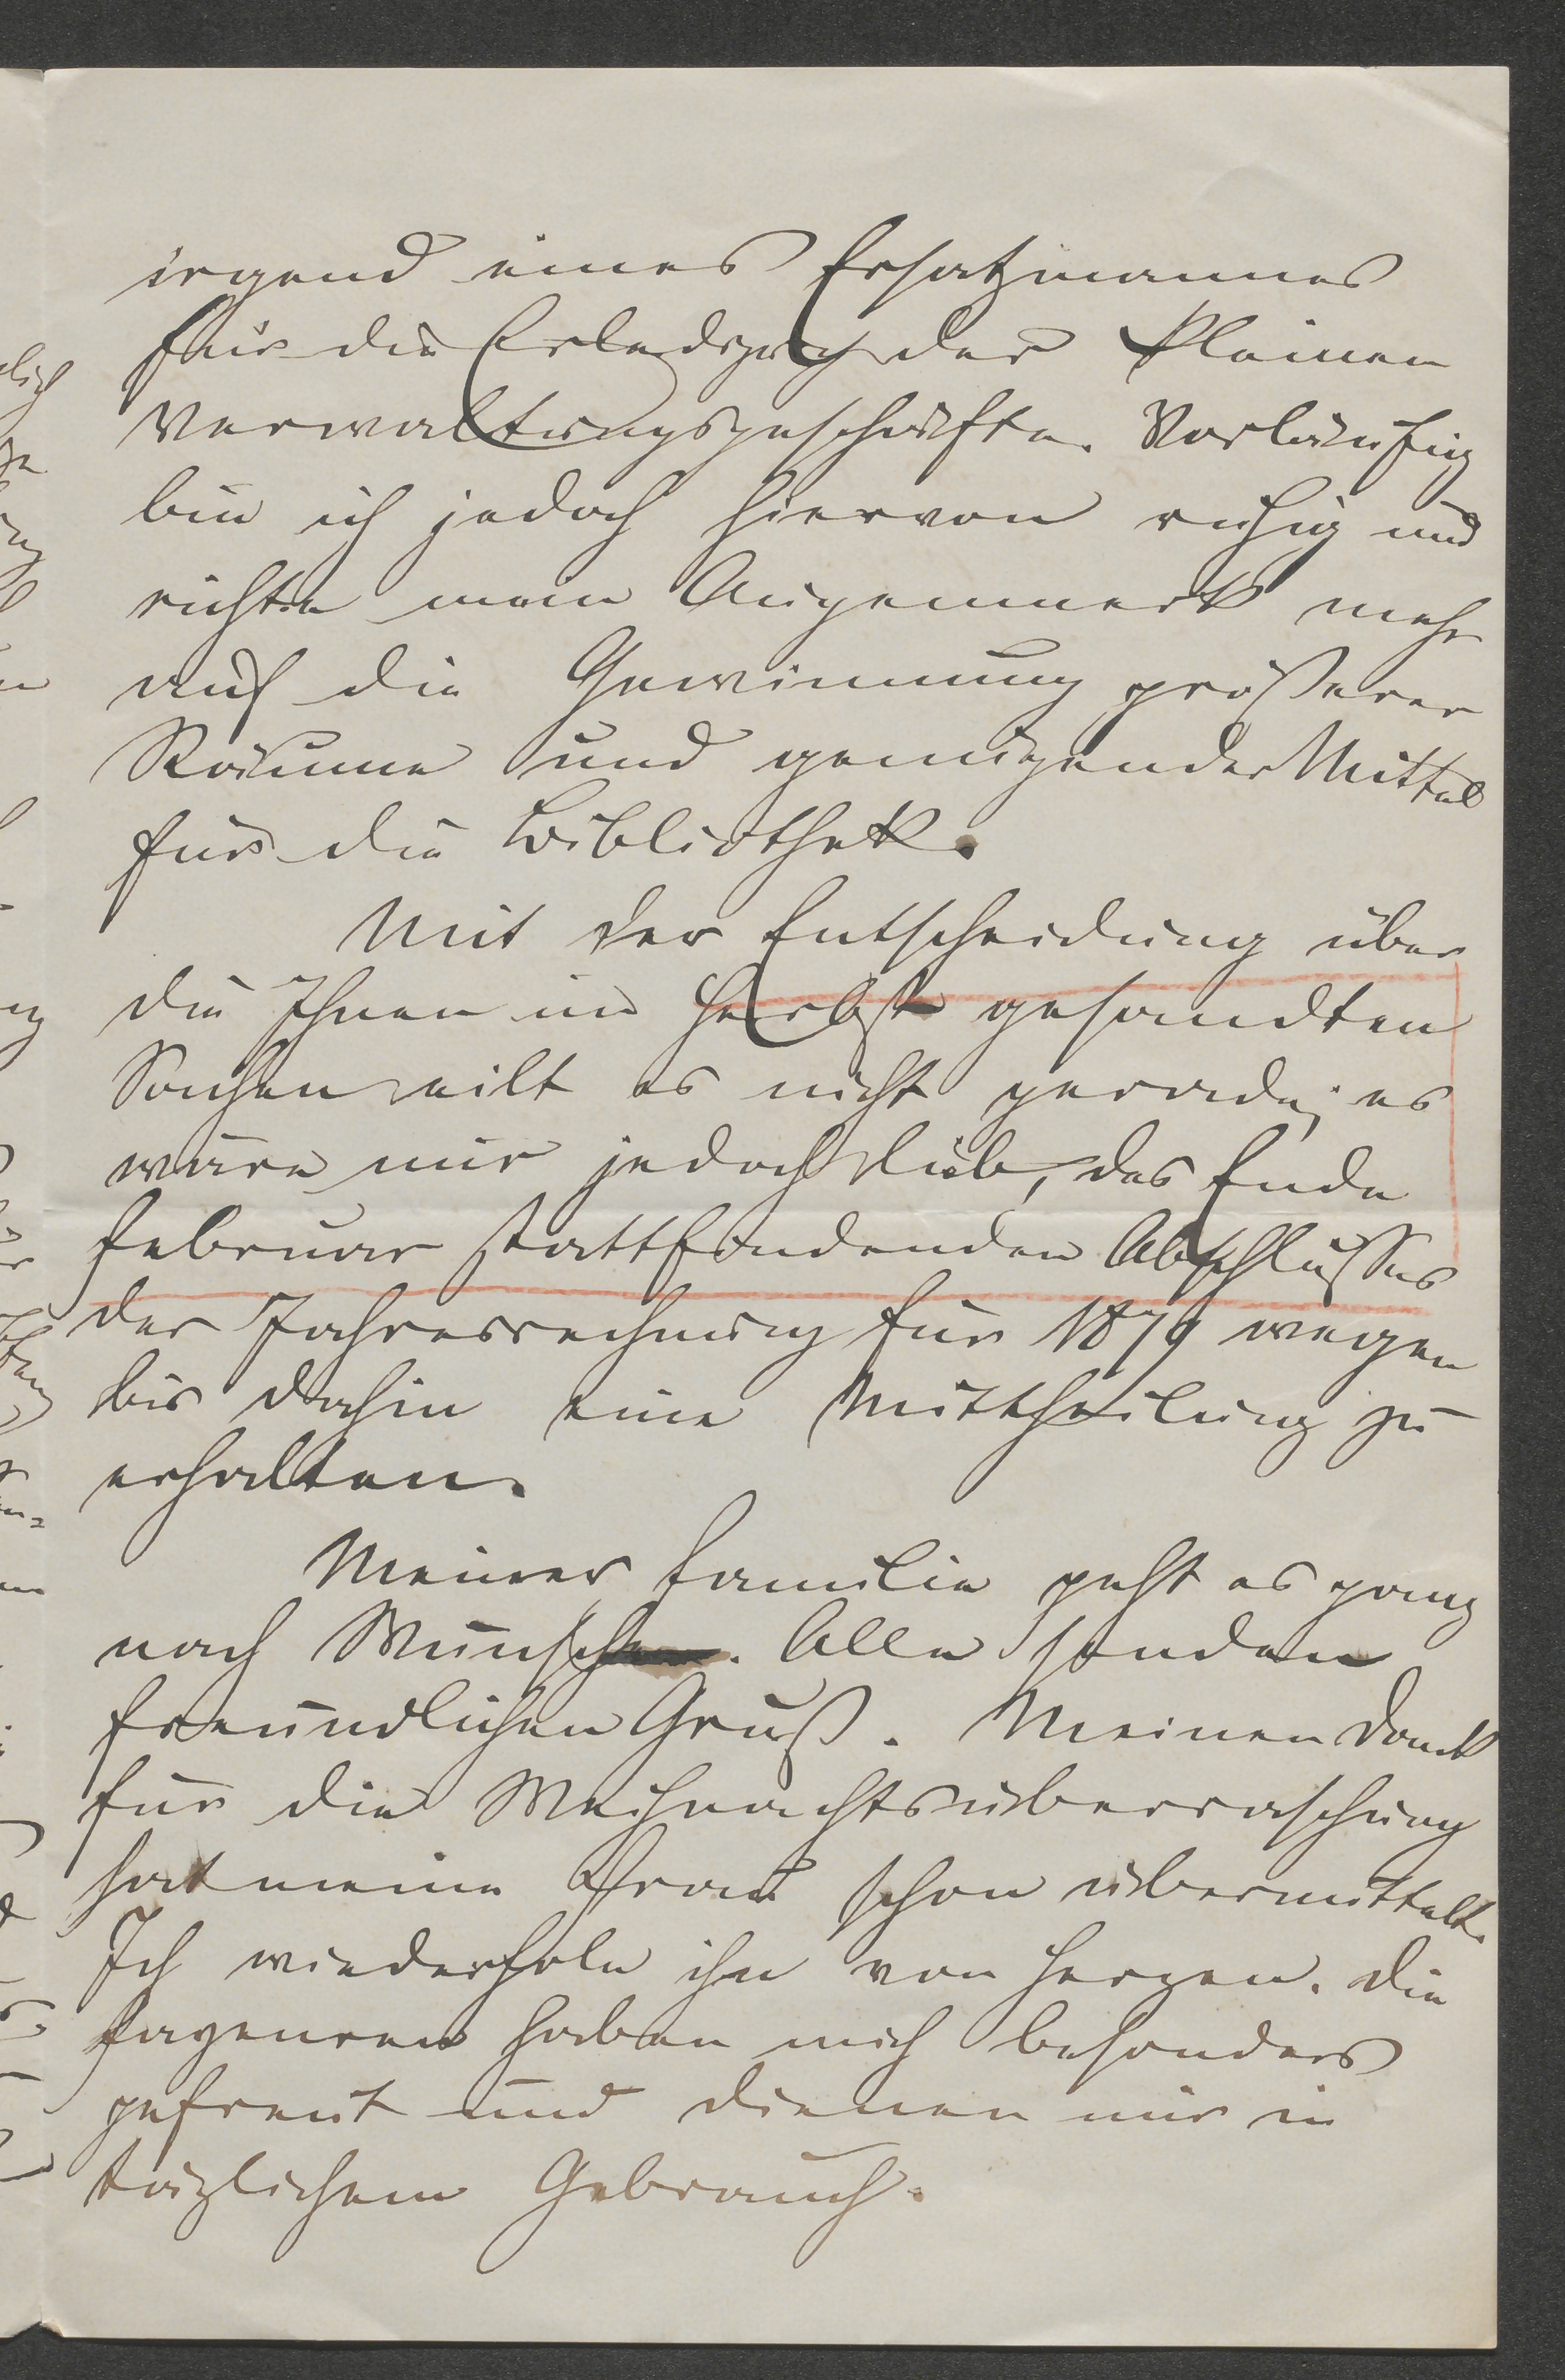 irgend eines Ersatzmannes
für die Erledigung der kleinen
Verwaltungsgeschäfte. Vorläufig
bin ich jedoch hiervon ruhig und
richte mein Augenmerk mehr
auf die Gewinnung größerer
Räume und genügender Mittel
für die Bibliothek.
Mit der Entscheidung über
die Ihnen im Herbst gesandten
Sachen eilt es nicht gerade; es
wäre mir jedoch lieb, des Ende
Februar stattfindenden Abschlusses
der Jahresrechnung für 1879 wegen
bis dahin eine Mittheilung zu
erhalten.
Meiner Familie geht es ganz
nach Wunsch. Alle senden
freundlichen Gruß. Meinen Dank
für die Weihnachtsüberraschung
hat meine Frau schon übermittelt.
Ich wiederhole ihn von Herzen. Die
haben mich besonders
gefreut und dienen mir in
täglichem Gebrauch.